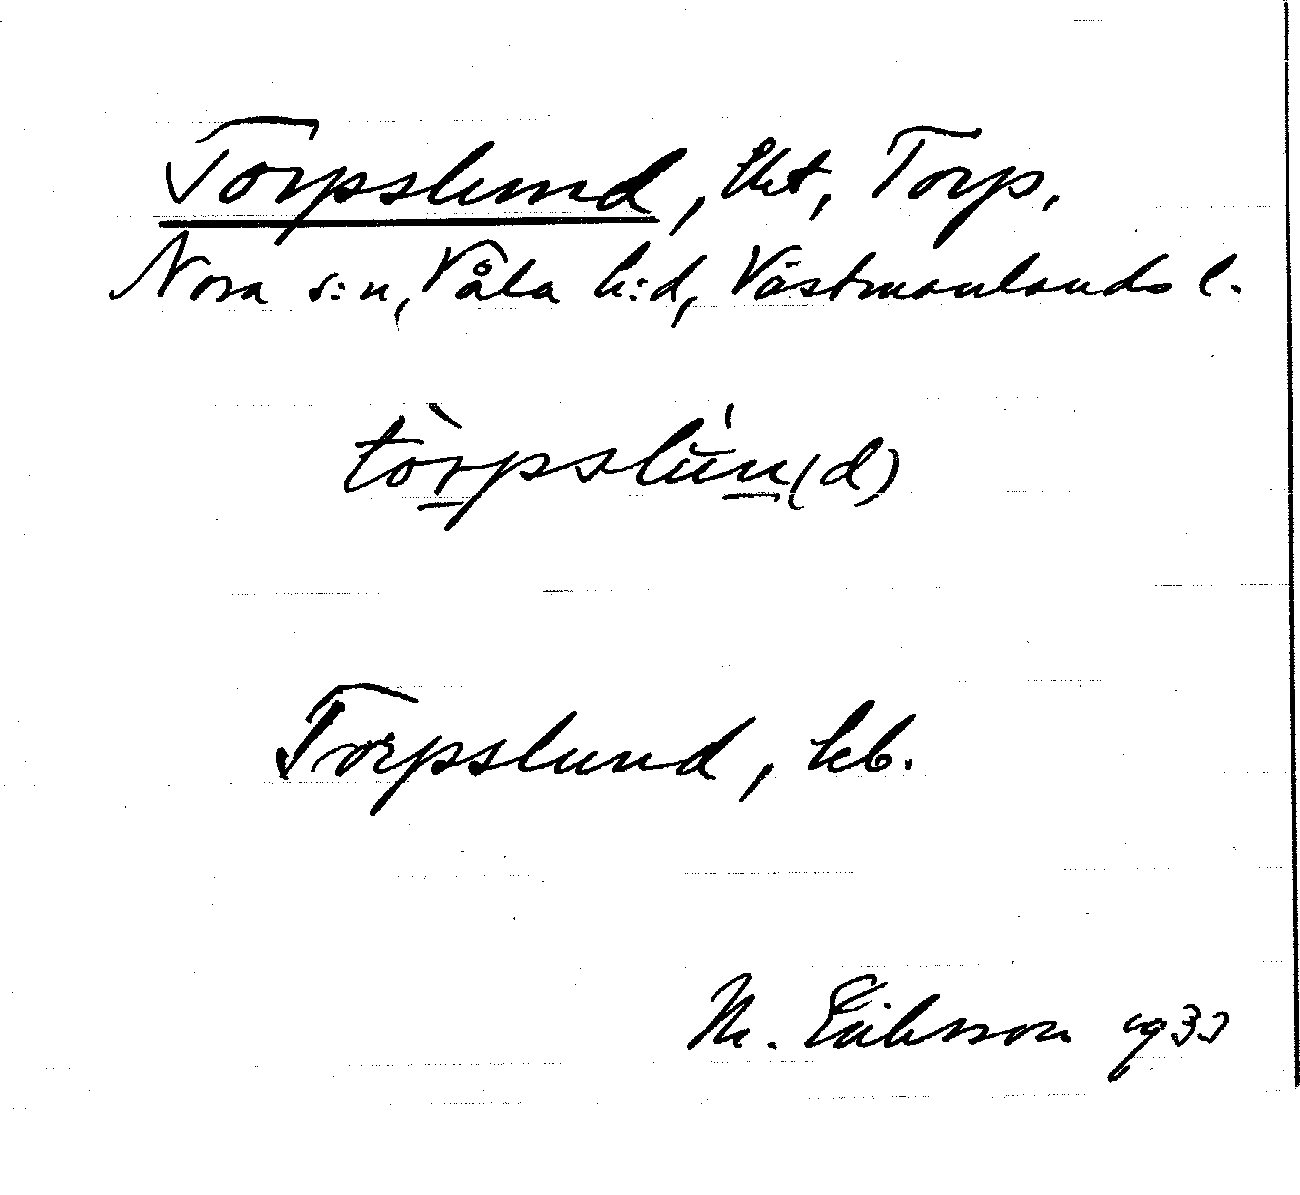 Torpslund, lht, Torp,
Nora s:n, Våla h:d, Västmanlands l.
tòrpslún(d)
Torpslund, kb.
M. Eriksson 1933